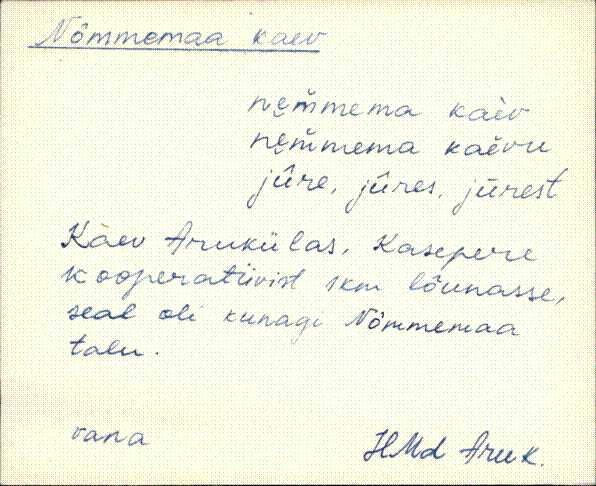 Nõmmemaa kaev
nę̈mmema kàev
nę̈mmema kaèvu
jûre, jûres, jùrest
Kaev Arukülas, Kasepere
kooperatiivist 1km lõunasse,
seal oli kunagi Nõmmemaa
talu.
vana
HMd Aruk.